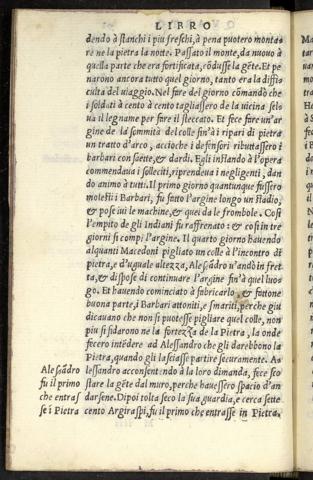 LIBRO
dendo à stanchi i piu freschi, à pena puotero monta-
re ne la pietra la notte. Passato il monte, da nuouo à
quella parte che era fortificata, cõdusse la gẽte. Et pe
narono ancora tutto quel giorno, tanto era la diffi
culta del uiaggio. Nel fare del giorno comandò che
i soldati à cento à cento tagliassero de la uicina sel-
ua il legname per fare il steccato. Et fece fare un'ar
gine de la sommità del colle fin'à i ripari di pietra
un tratto d'arco, accioche i defensori ributtassero i
barbari con saette, & dardi. Egli instando à l'opera
commendaua i solleciti, riprendeua i negligenti, dan
do animo à tutti. Il primo giorno quantunque fussero
molesti i Barbari, fu fatto l'argine longo un stadio,
& pose iui le machine, & quei da le frombole. Cosi
l'empito de gli Indiani fu raffrenato: & cosi in tre
giorni si compì l'argine. Il quarto giorno hauendo
alquanti Macedoni pigliato un colle à l'incontro di
pietra, e d'uguale altezza, Alesãdro u'andò in fret
ta, & dispose di continuare l'argine fin'à quel luo-
go. Et hauendo cominciato à fabricarlo & fattone
buona parte, i Barbari attoniti, e smariti, perche giu
dicauano che non si puotesse pigliare quel colle, non
piu si fidarono ne la fortezza de la Pietra, la onde
fecero intẽdere ad Alessandro che gli darebbono la
Pietra, quando gli lasciasse partire securamente. A-
lessandro acconsentendo à la loro dimanda, fece sco
stare la gẽte dal muro, perche hauessero spacio d'an
darsene. Dipoi tolta seco la sua guardia, e cerca sette
cento Argiraspi, fu il primo che entrasse in Pietra.
Alesãdro
fu il primo
che entras
se i Pietra